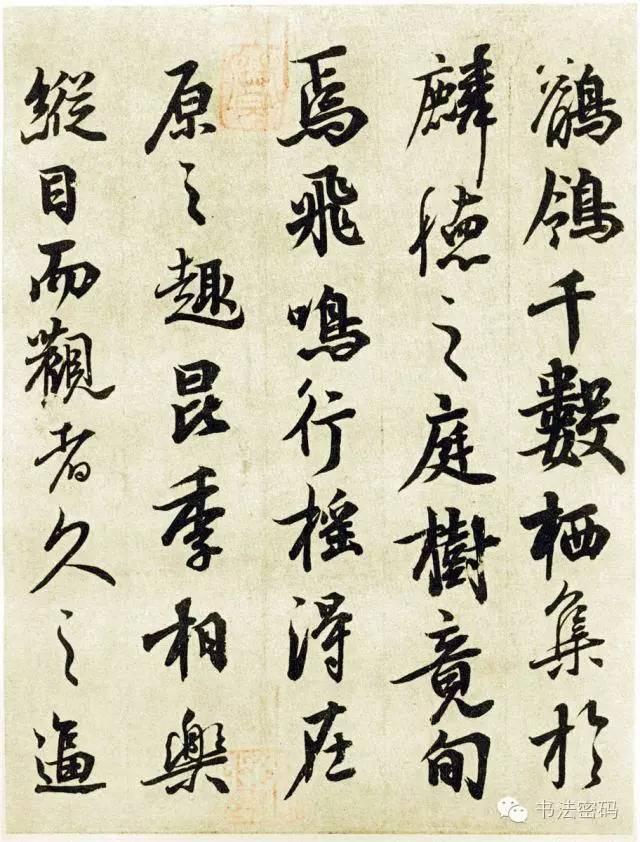 鶺鴒千數栖集於
麟德之庭樹竟旬
焉飛鳴行搖得在
原之趣昆季相樂
縱目而觀者久之逼
书法密码